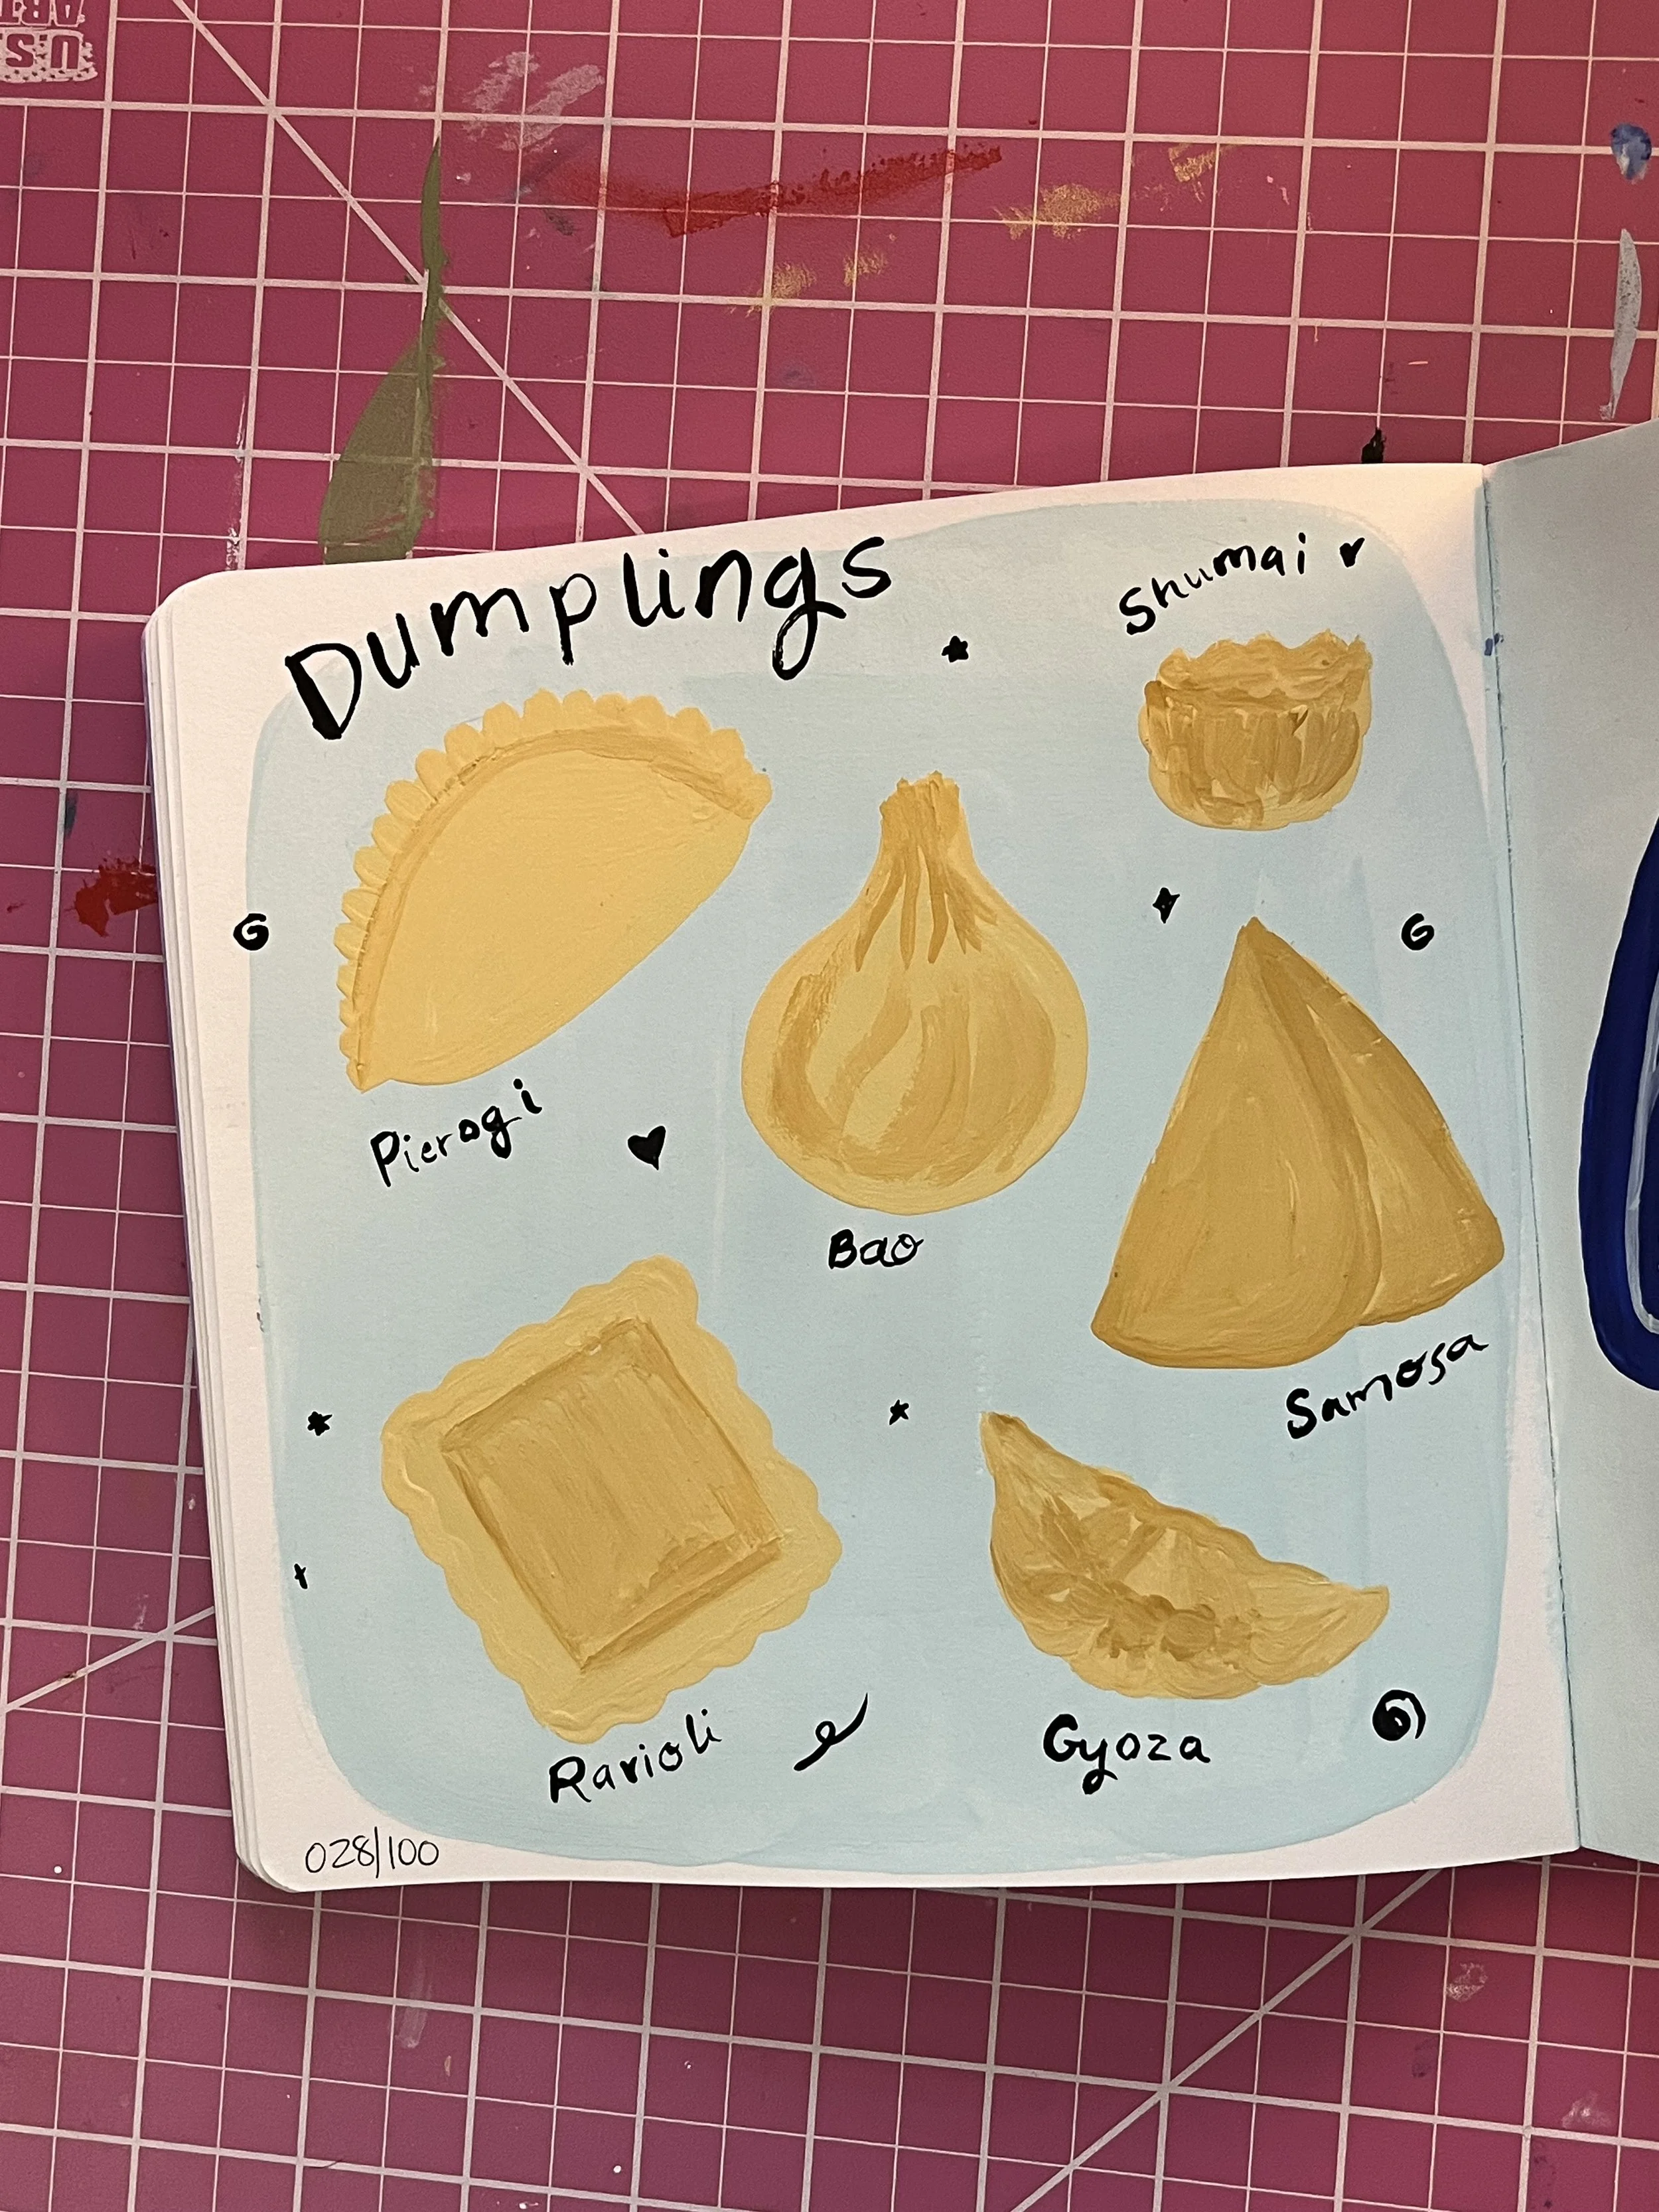 Dumplings
Shumai
Pierogi
Bao
Samosa
Ravioli
Gyoza
028/100